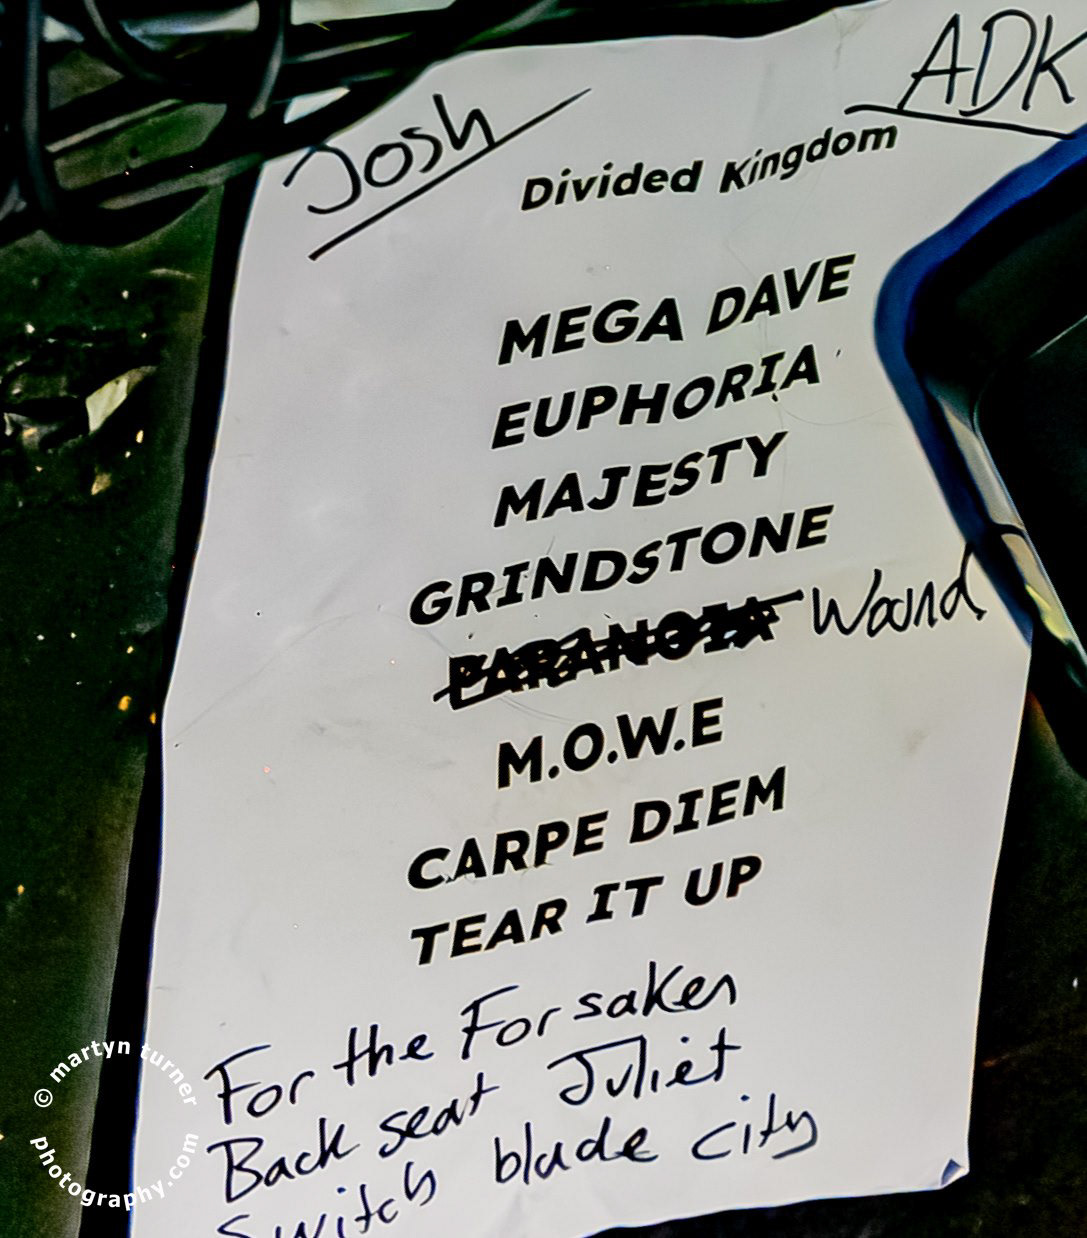 Josh
ADK
Divided Kingdom
MEGA DAVE
EUPHORIA
MAJESTY
GRINDSTONE
PARANOIA Wound
M.O.W.E
CARPE DIEM
TEAR IT UP
For the Forsaken
Back seat Juliet
Switch blade city
© martyn turner
photography.com